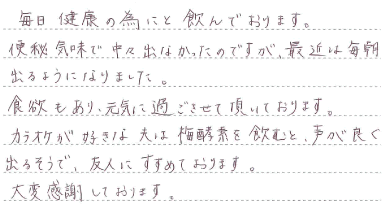 毎日 健康の為にと 飲んでおります。
便秘気味で 中々出なかったのですが、最近は毎朝
出るようになりました。
食欲もあり、元気に過ごさせて頂いております。
カラオケが好きな夫は梅酵素を飲むと、声が良く
出るそうで、友人にすすめております。
大変感謝しております。